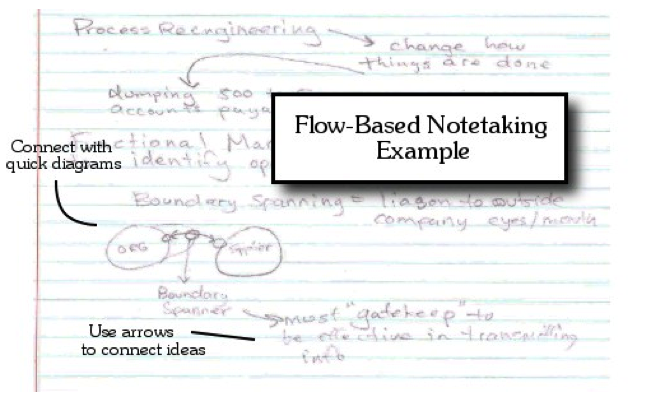 Process Reengineering
change how
things are done
dumping 500
accounts paya
Flow-Based Notetaking
Example
Functional Man
identify op
Connect with
quick diagrams
Boundary Spanning = liason to outside
company eyes/mouth
ORG
Supplier
Boundary
Spanner
Must "gatekeep" to
be effective in transmitting
info
Use arrows
to connect ideas